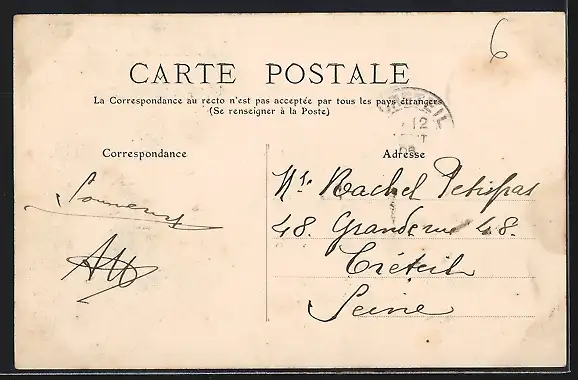 6
CARTE POSTALE
La Correspondance au recto n'est pas acceptée par tous les pays étrangers
(Se renseigner à la Poste)
12
Correspondance
Adresse
Rachel Petitpas
48. Grande rue 48.
Créteil
Seine